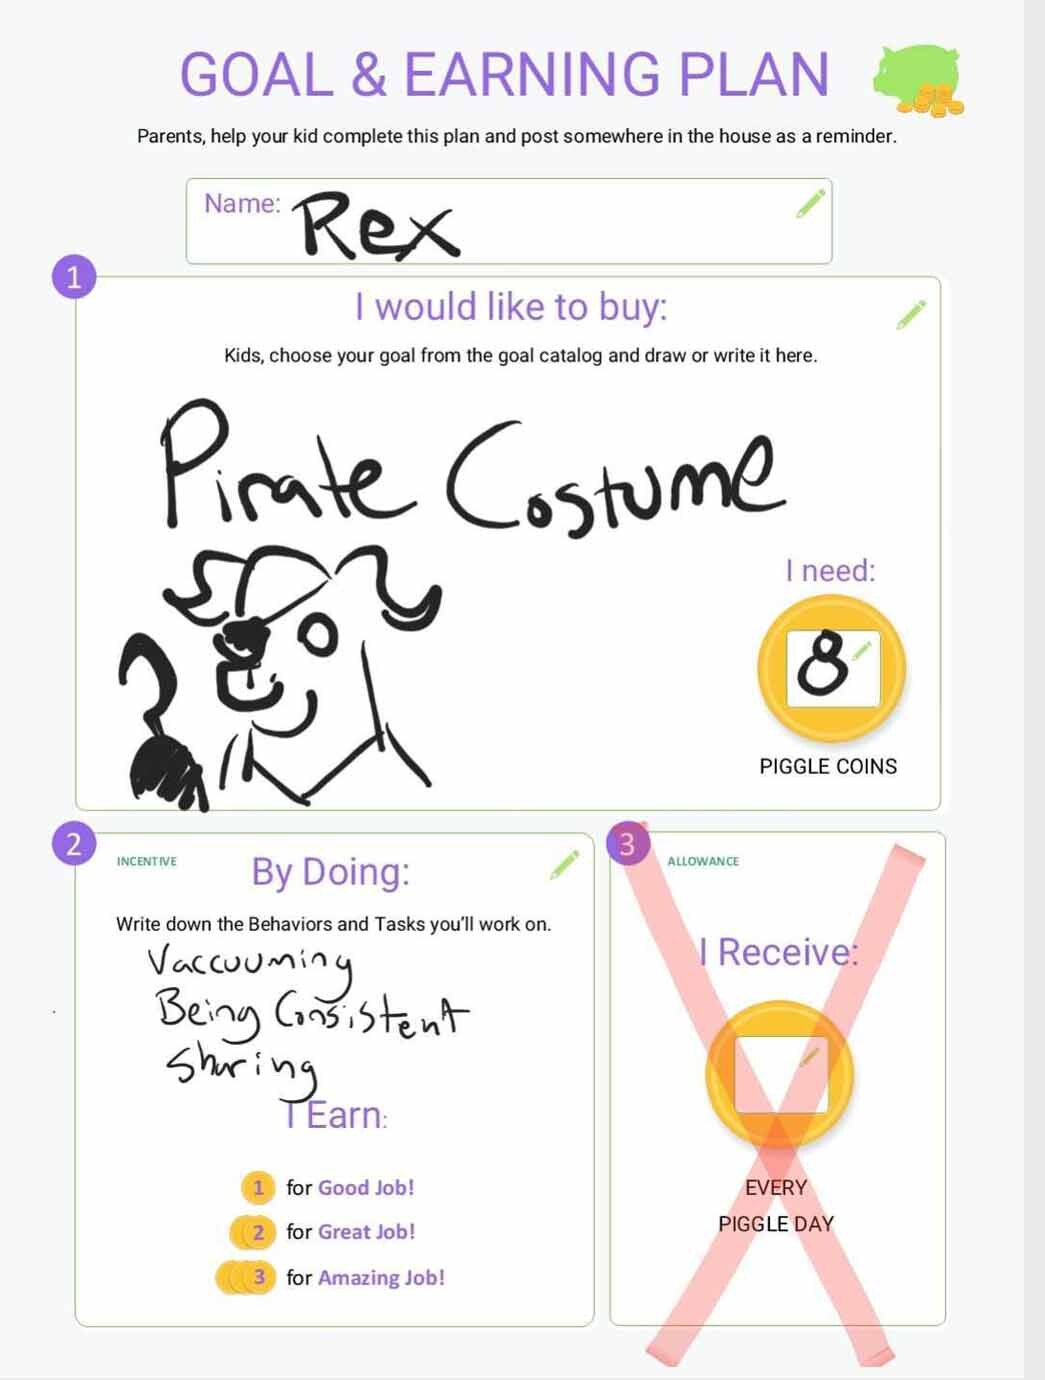 GOAL & EARNING PLAN
Parents, help your kid complete this plan and post somewhere in the house as a reminder.
Name: Rex
1
I would like to buy:
Kids, choose your goal from the goal catalog and draw or write it here.
Pirate Costume
I need:
8
PIGGLE COINS
2
INCENTIVE
By Doing:
Write down the Behaviors and Tasks you'll work on.
Vaccuuming
Being Consistent
Sharing
I Earn:
1 for Good Job!
2 for Great Job!
3 for Amazing Job!
3
ALLOWANCE
I Receive:
EVERY
PIGGLE DAY